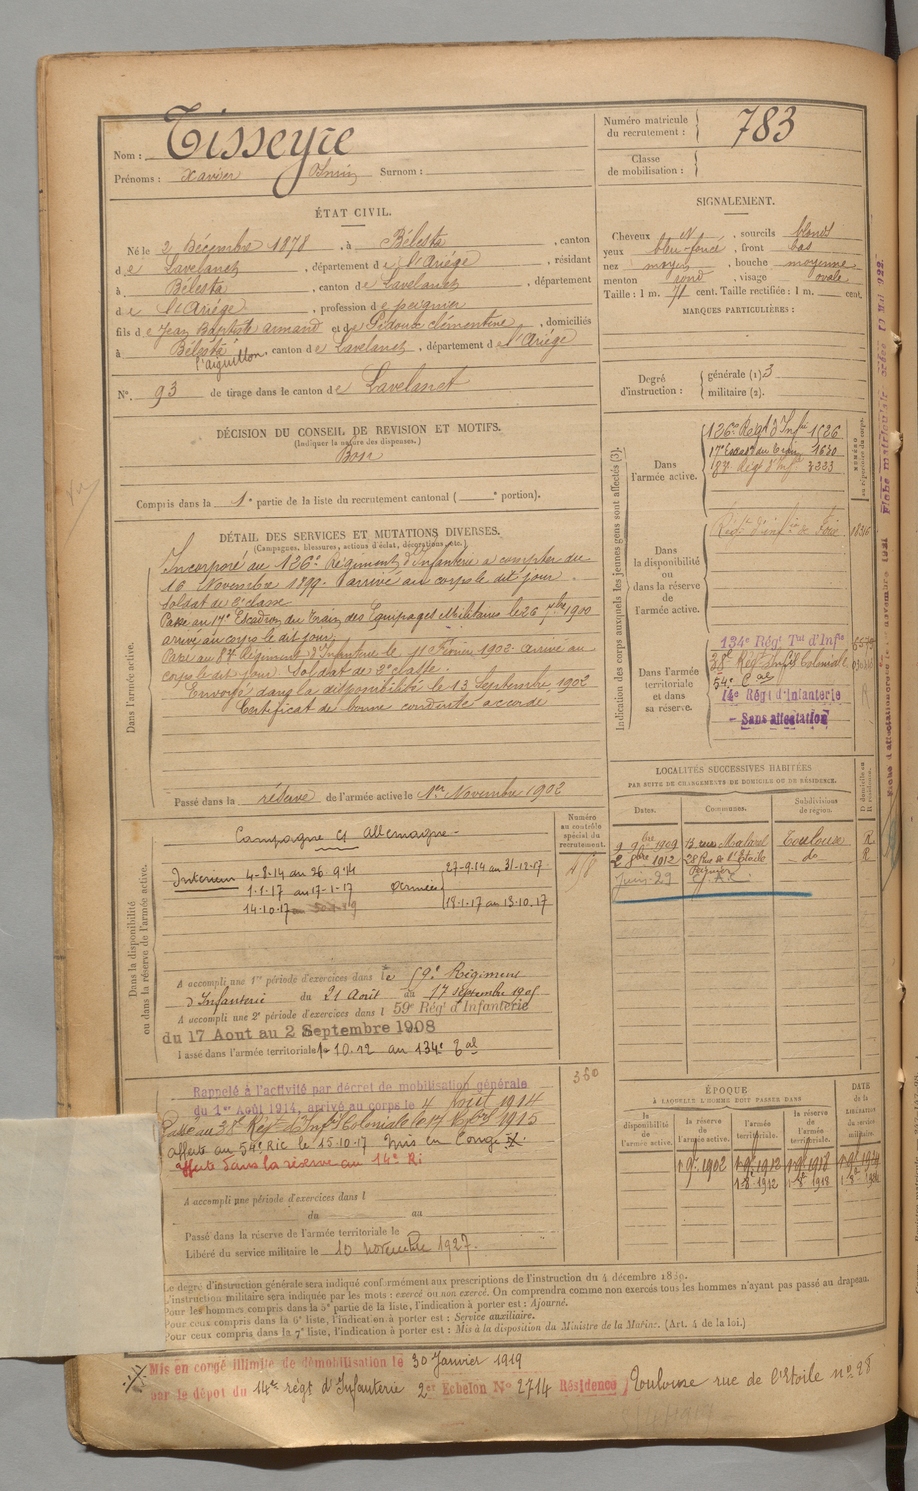 Nom : Tisseyre
Prénoms : Xavier Surnom :
Numéro matricule du recrutement : 783
Classe de mobilisation :
ÉTAT CIVIL.
Né le 2 Décembre 1878, à Bélesta, canton
de Lavelanet, département de l'Ariège, résidant
à Bélesta, canton de Lavelanet, département
de l'Ariège, profession de peignier
fils de Jean Baptiste armand et de clémentine, domiciliés
à Bélesta, canton de Lavelanet, département de l'Ariège
l'aiguillon
No. 93 de tirage dans le canton de Lavelanet
SIGNALEMENT.
Cheveux N, sourcils blonds
yeux bleu foncé, front bas
nez moyen, bouche moyenne
menton rond, visage ovale
Taille : 1 m. 71 cent. Taille rectifiée : 1 m. cent.
MARQUES PARTICULIÈRES :
Degré d'instruction : générale (1) 3
militaire (2).
DÉCISION DU CONSEIL DE REVISION ET MOTIFS.
(Indiquer la nature des dispenses.)
Bon
Compris dans la 1e partie de la liste du recrutement cantonal ( e portion).
DÉTAIL DES SERVICES ET MUTATIONS DIVERSES.
(Campagnes, blessures, actions d'éclat, décorations, etc.)
Dans l'armée active.
Incorporé au 126e Régiment d'Infanterie à compter du
16 Novembre 1899. arrivé au corps le dit jour.
Soldat de 2e classe
Passé au 17e Escadron du Train des Equipages Militaires le 26 1900
arrivé au corps le dit jour,
Passé au 87e Régiment d'Infanterie le 11 Février 1902 arrivé au
corps le dit jour. Soldat de 2e classe.
Envoyé dans la disponibilité le 13 Septembre 1902
Certificat de bonne conduite accordé
Passé dans la réserve de l'armée active le 1er Novembre 1902
Indication des corps auxquels les jeunes gens sont affectés (3).
Dans l'armée active.
126e Régt d'Infie 1626
17e Escad. du Train 1630
87e Régt d'Inf. 3333
Dans la disponibilité ou dans la réserve de l'armée active.
Régt d'infie de Foix
Dans l'armée territoriale et dans sa réserve.
134e Régt Tal d'Infie
38e Régt Infie Coloniale
54e Cal
14e Régt d'Infanterie
- Sans affectation
LOCALITÉS SUCCESSIVES HABITÉES
PAR SUITE DE CHANGEMENTS DE DOMICILE OU DE RÉSIDENCE.
Dates. Communes. Subdivisions de région. D domicile ou R résidence.
9 9bre 1909 13 rue Toulouse R
2 8bre 1912 28 Rue de l'Etoile do R
Juin 29
Dans la disponibilité ou dans la réserve de l'armée active.
Numéro au contrôle spécial du recrutement.
Campagne Ct Allemagne.
Intérieur 4-8-14 au 26-9-14
1-1-17 au 17-1-17
14-10-17 au 30-1-19
Armées 27-9-14 au 31-12-17
18-1-17 au 13-10-17
A accompli une 1re période d'exercices dans le 59e Régiment
d'Infanterie du 21 Août au 17 septembre 1905
A accompli une 2e période d'exercices dans l 59e Régt d'Infanterie
du 17 Aout au 2 Septembre 1908
Passé dans l'armée territoriale 1-10-12 au 134e Tal
Rappelé à l'activité par décret de mobilisation générale
du 1er Août 1914, arrivé au corps le 4 Août 1914
Passé au 38e Régt d'Infie Coloniale le 17 1915
Affecté au 54e RIC le 15-10-17 Mis en Congé X.
affecté dans la réserve au 14e RI
360
A accompli une période d'exercices dans l
du au
Passé dans la réserve de l'armée territoriale le
Libéré du service militaire le 10 novembre 1927.
ÉPOQUE
À LAQUELLE L'HOMME DOIT PASSER DANS
la disponibilité de l'armée active.
la réserve de l'armée active.
l'armée territoriale.
la réserve de l'armée territoriale.
DATE de la LIBÉRATION du service militaire.
1 9e 1902 1 9e 1912 1 9e 1918
1-8e 1912 1-8e 1918
Le degré d'instruction générale sera indiqué conformément aux prescriptions de l'instruction du 4 décembre 1889.
L'instruction militaire sera indiquée par les mots : exercé ou non exercé. On comprendra comme non exercés tous les hommes n'ayant pas passé au drapeau.
Pour les hommes compris dans la 5e partie de la liste, l'indication à porter est : Ajourné.
Pour ceux compris dans la 6e liste, l'indication à porter est : Service auxiliaire.
Pour ceux compris dans la 7e liste, l'indication à porter est : Mis à la disposition du Ministre de la Marine. (Art. 4 de la loi.)
X Mis en congé illimité de démobilisation le 30 Janvier 1919
par le dépot du 14e régt d'Infanterie 2e Echelon No 2714 Résidence) Toulouse rue de l'Etoile no 28